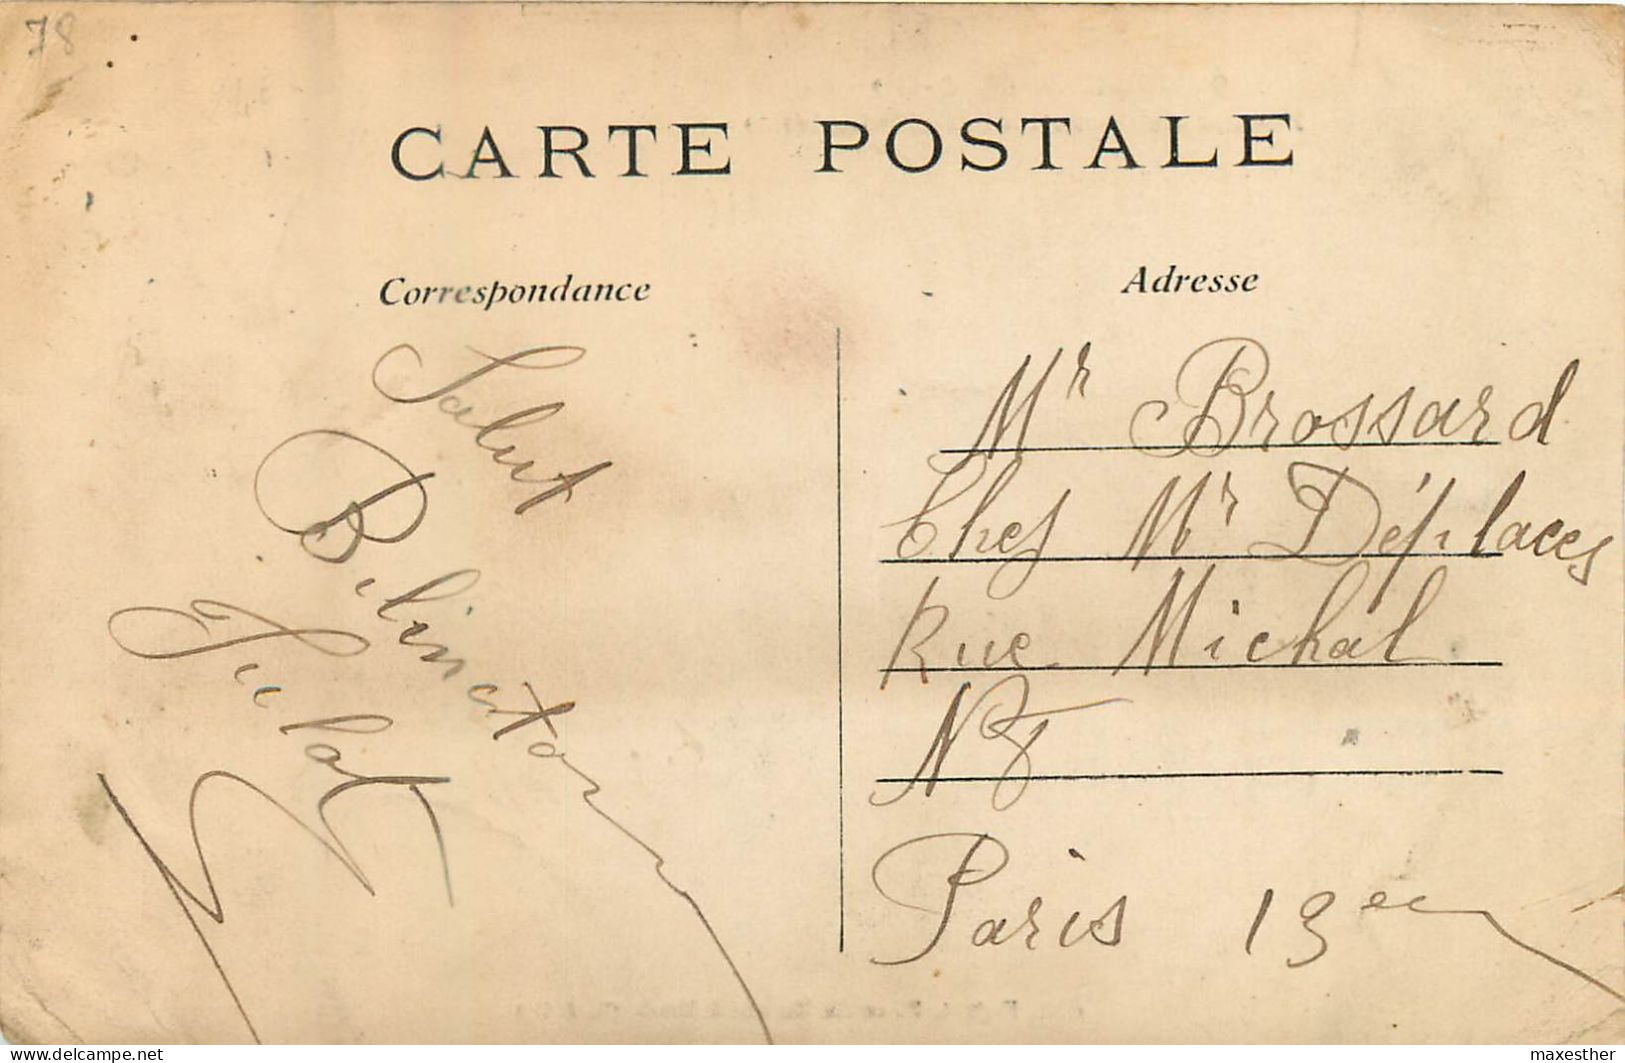 78
CARTE POSTALE
Correspondance
Salut
Julot
Adresse
Mr Brossard
Chez Mr Déplaces
Rue Michal
N 8
Paris 13 em
www.delcampe.net
maxesther